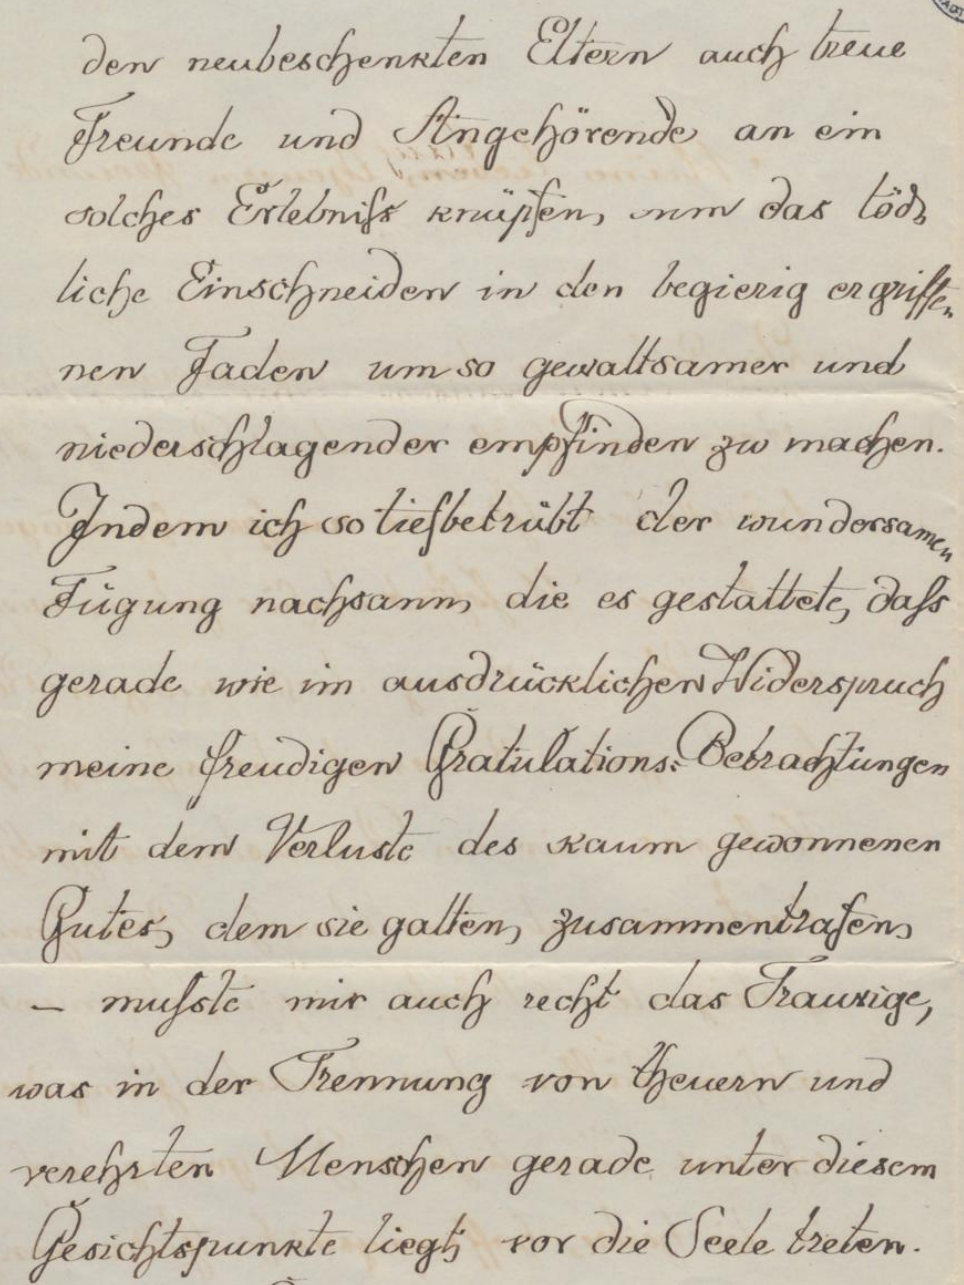 den neubeschenkten Eltern auch treue
Freunde und Angehörende an ein
solches Erlebniß knüpfen, um das töd-
liche Einschneiden in den begierig ergriffe-
nen Faden um so gewaltsamer und
niederschlagender empfinden zu machen.
Indem ich so tiefbetrübt der wundersamen
Fügung nachsann, die es gestattete, daß
gerade wie im ausdrücklichen Widerspruch
meine freudigen Gratulations-Betrachtungen
mit dem Verluste des kaum gewonnenen
Gutes, dem sie galten, zusammentrafen,
— mußte mir auch recht das Traurige,
was in der Trennung von theuern und
verehrten Menschen gerade unter diesem
Gesichtspunkte liegt, vor die Seele treten.